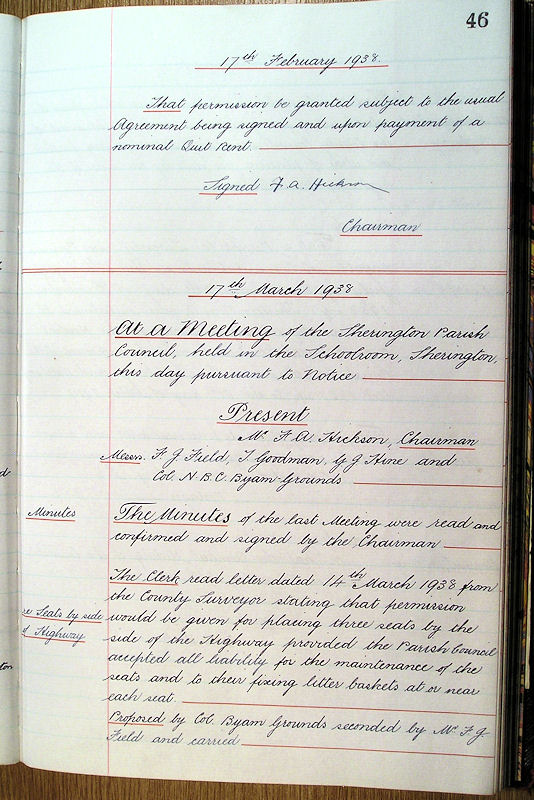 46
17th February 1938.
That permission be granted subject to the usual
Agreement being signed and upon payment of a
nominal Quit Rent.
Signed F. A. Hickson
Chairman
17th March 1938
At a Meeting of the Sherington Parish
Council, held in the Schoolroom, Sherington,
this day pursuant to Notice
Present
Mr F. A. Hickson, Chairman
Messrs. F J Field, T Goodman, G J Hine and
Col. N. B. C. Byam-Grounds
Minutes
The Minutes of the last Meeting were read and
confirmed and signed by the Chairman
re Seats by side
of Highway
The Clerk read letter dated 14th March 1938 from
the County Surveyor stating that permission
would be given for placing three seats by the
side of the Highway provided the Parish Council
accepted all liability for the maintenance of the
seats and to their fixing litter baskets at or near
each seat.
Proposed by Col. Byam Grounds seconded by Mr F J
Field and carried